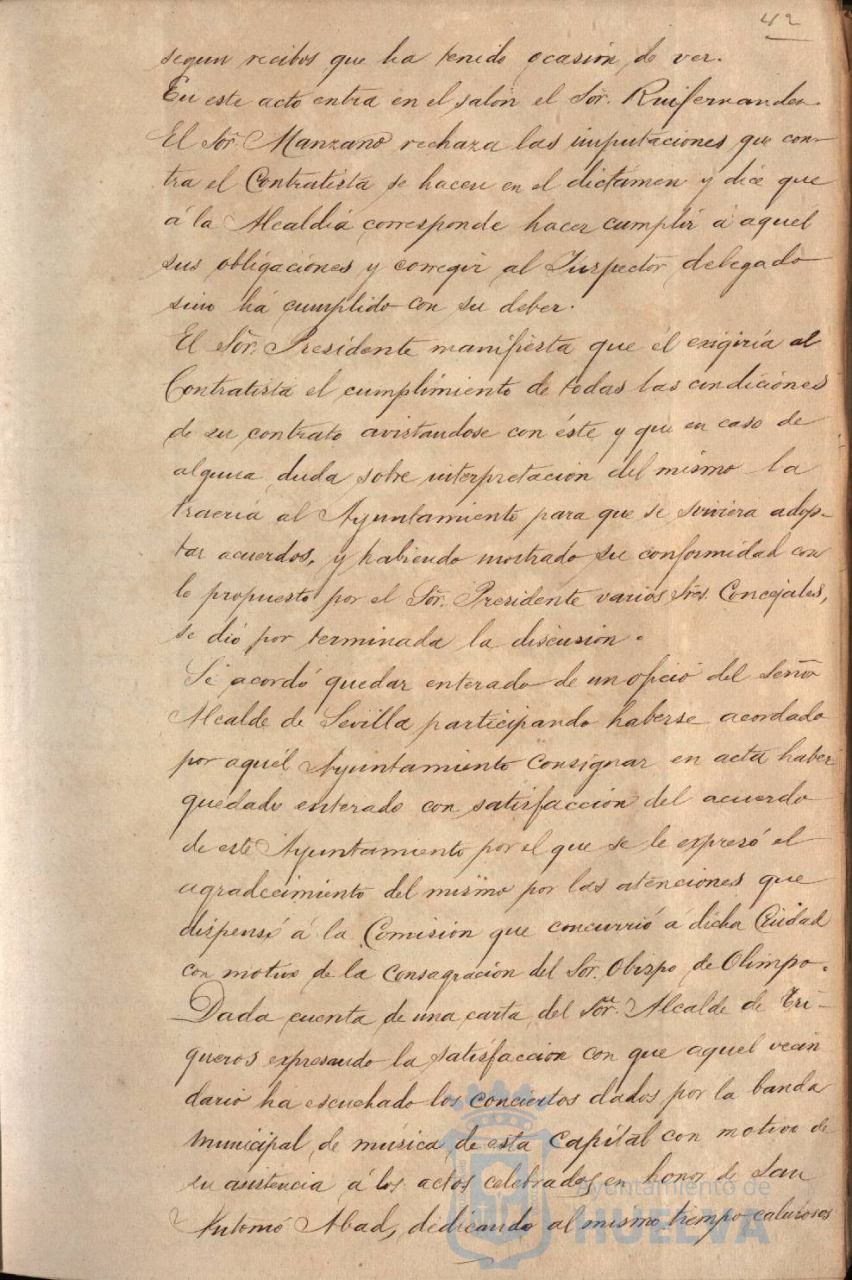 42
segun recibos que ha tenido ocasión de ver.
En este acto entra en el salón el Sor. Ruifernandez.
El Sor. Manzano rechaza las imputaciones que con-
tra el Contratista se hacen en el dictámen y dice que
á la Alcaldia corresponde hacer cumplir á aquel
sus obligaciones y corregir al Inspector delegado
sino há cumplido con su deber.
El Sor. Presidente manifiesta que él exigiría al
Contratista el cumplimiento de todas las condiciones
de su contrato avistandose con éste y que en caso de
alguna duda sobre interpretacion del mismo la
traería al Ayuntamiento para que se sirviera adop-
tar acuerdos, y habiendo mostrado su conformidad con
lo propuesto por el Sor. Presidente varios Sres. Concejales,
se dió por terminada la discusion.
Se acordó quedar enterado de un oficio del Señor
Alcalde de Sevilla participando haberse acordado
por aquél Ayuntamiento consignar en acta haber
quedado enterado con satisfacción del acuerdo
de este Ayuntamiento por el que se le expresó el
agradecimiento del mismo por las atenciones que
dispensó á la Comision que concurrió á dicha Ciudad
con motivo de la Consagración del Sor. Obispo de Olimpo.
Dada cuenta de una carta del Sor. Alcalde de Tri-
gueros expresando la satisfaccion con que aquel vecin
dario ha escuchado los conciertos dados por la banda
municipal de música de esta Capital con motivo de
su asistencia á los actos celebrados en honor de San
Antonio Abad, dedicando al mismo tiempo calurosos
Ayuntamiento de
HUELVA